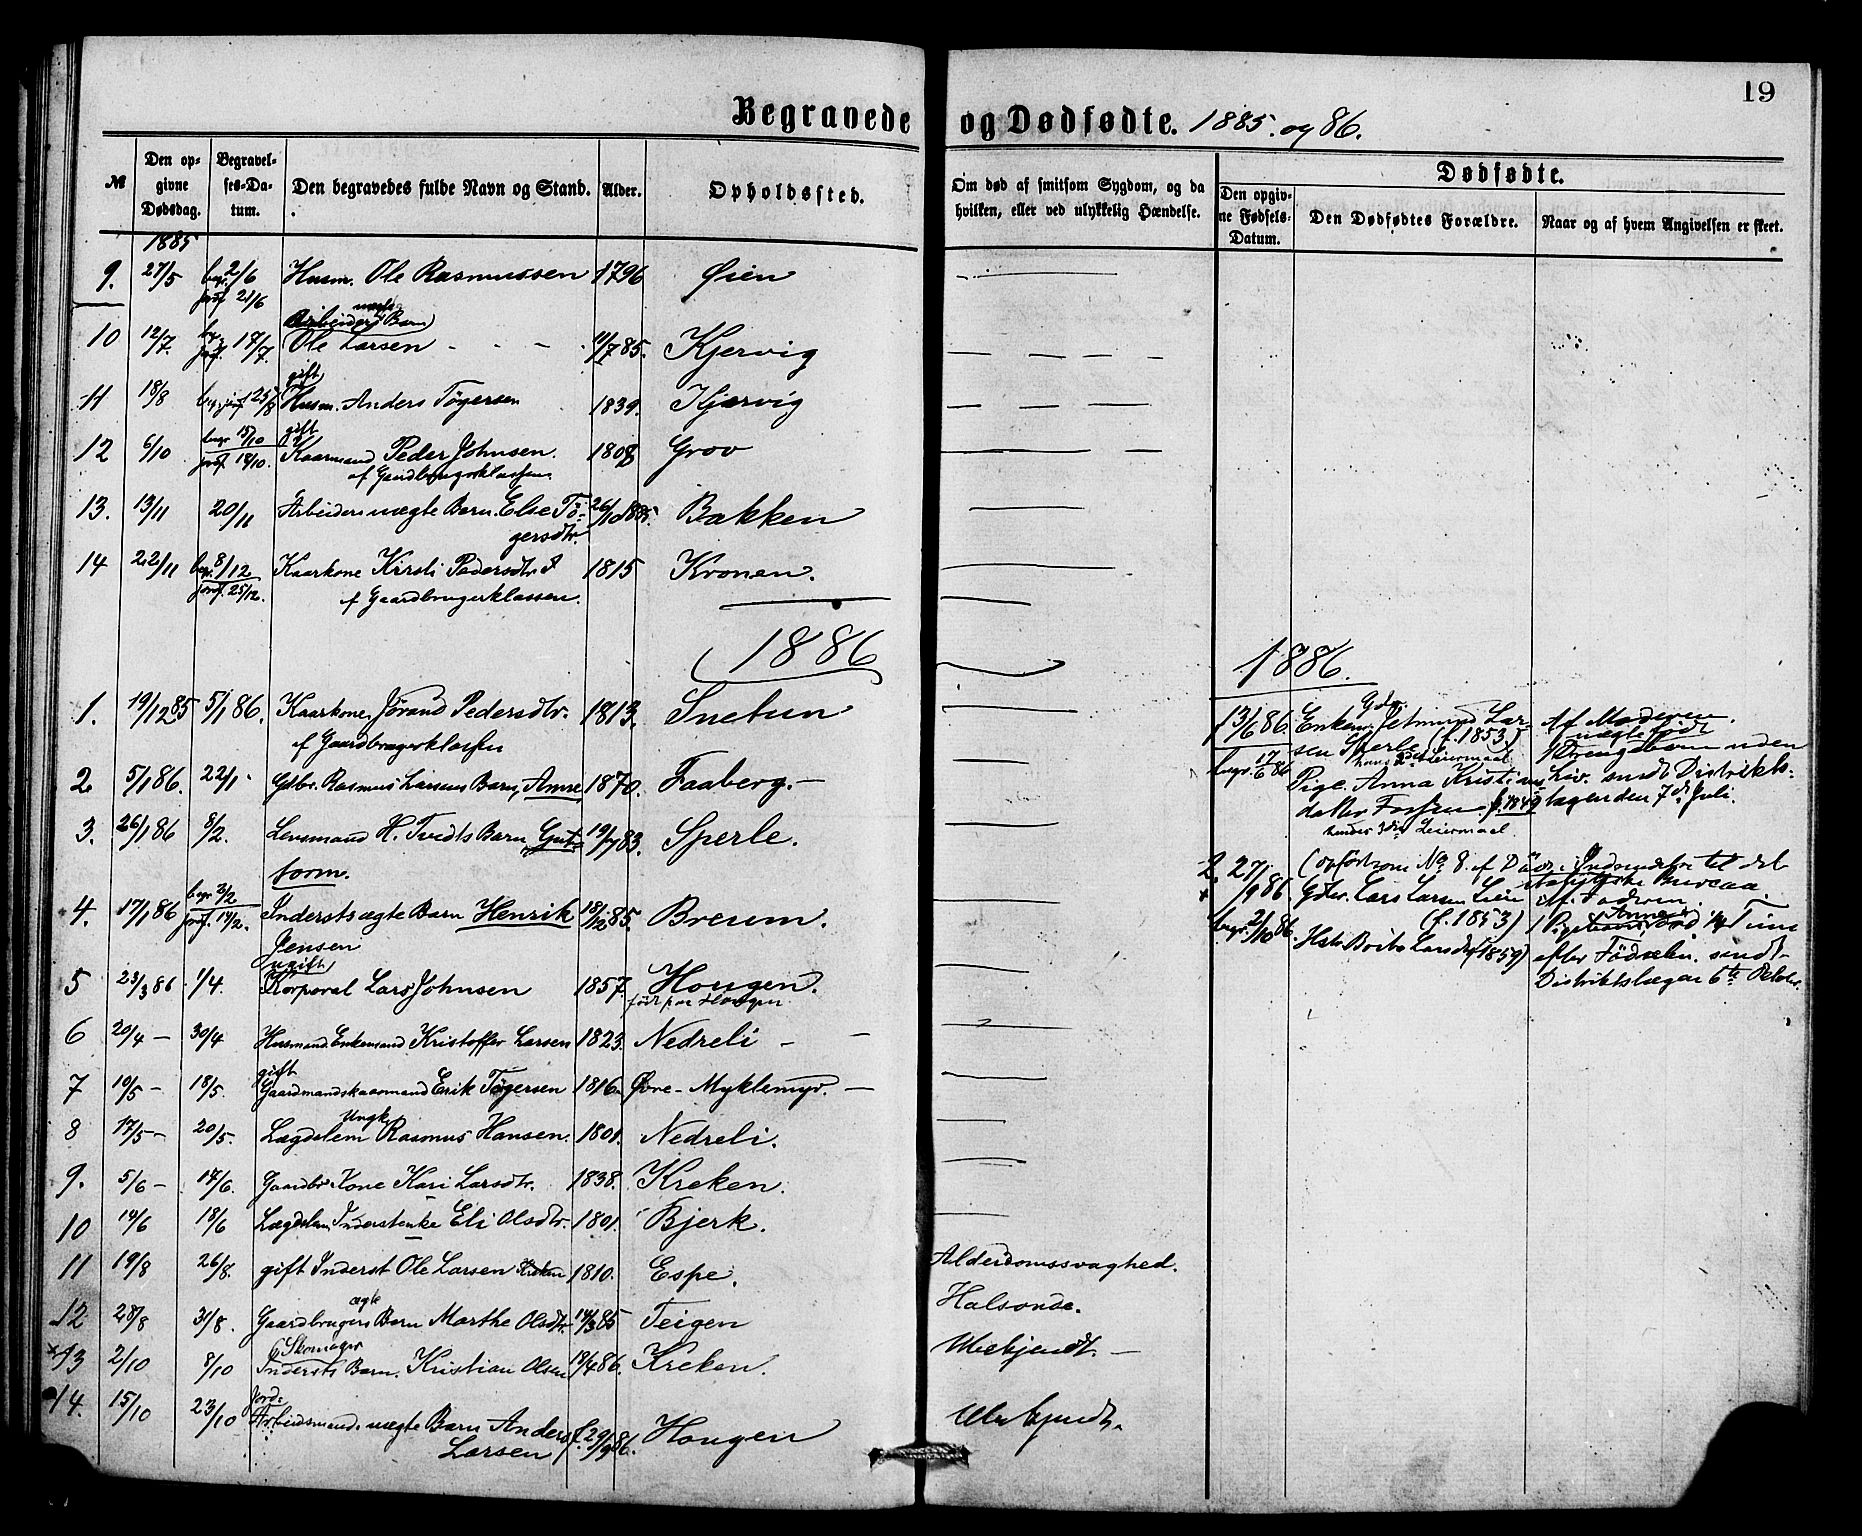 19
Begravede og Dødfødte. 1885. og 86.
№ Den opgivne Dødsdag. Begravelses-Datum. Den begravedes fulde Navn og Stand. Alder. Opholdssted. Om død af smitsom Sygdom, og da hvilken, eller ved ulykkelig Hændelse.
Dødfødte.
Den opgivne Fødsels-Datum. Den Dødfødtes Forældre. Naar og af hvem Angivelsen er skeet.
1885
9. 27/5 begr. 2/6 jordf. 21/6 Husm. Ole Rasmussen 1796 Øien
10 12/7. 17/7. Arbeiders uægte Barn Ole Larsen 11/7 85. Kjervig
11 18/8 25/8 gift Husm. Anders Tøgersen 1839. Kjærvig
12 6/10 begr 15/10 jordf. 18/10. gift Kaarmand Peder Johnsen. 1808 Grov
af Gaardbrugerklassen.
13. 13/11 20/11 Arbeiders uægte Barn. Else Tøgersdtr. 26/10 1885. Bakken
14 22/11 begr. 8/12 jordf. 25/12. Kaarkone Kirsti Pedersdtr 1815 Kronen.
af Gaardbrugerklassen.
1886
1. 19/12 85 5/1 86. Kaarkone, Jørand Pedersdtr. 1813. Snetun
af Gaardbrugerklassen
2. 5/1 86. 22/1 Gdbr. Rasmus Larsens Barn, Anne 1870. Faaberg.
3. 26/1 86 8/2. Lensmand H. Tvedts Barn, Guttorm. 19/7 83. Sperle.
4. 17/1 86 begr. 3/2 jordf. 14/2. Inderst ægte Barn Henrik Jensen 18/12 85. Breum.
5 23/3 86 1/4. ugift Korporal Lars Johnsen 1857. Hougen.
født paa Hougen
6 20/4 30/4 Husmand Enkemand Kristoffer Larsen 1823. Nedreli
7 10/5 18/5. gift Gaardmandskaarmand Erik Tøgersen 1816. Øvre-Myklemyr.
8 17/5 20/5. Lægdslem Ungk. Rasmus Hansen. 1801. Nedreli.
9. 5/6 17/6. Gaardbr. Kone Kari Larsdtr. 1838. Kreken.
10 14/6 18/6 Lægdslem Inderstenke Eli Olsdtr. 1801. Bjerk.
11 19/8 26/8. gift Inderst Ole Larsen Kreken 1810. Espe. Alderdomssvaghed.
12 28/8 31/8. Gaardbrugers ægte Barn Marthe Olsdtr. 14/3 85 Teigen Halsonde.
13 2/10 8/10 Skomager Indersts Barn. Kristian Olsen 19/4 86. Kreken. Ubekjendt.
14. 15/10 23/10 Arbeidsmands uægte Barn Anders Larsen f. 29/9 86. Hougen Ubekjendt.
1886.
13/6 86. Enkem. Jetmund Larsen Sperle (f. 1853) Af Moderen.
begr. 17/6 86 hans 2det Leiermaal 1 Drengebarn uægtefødt uden
Pige. Anna Kristiansdatter Fossen f. 1849 Liv. sendt Distriktslægen den 7de Juli.
hendes 3die Leiermaal
2. 27/9 86. (opført som No 8. af Døde. Indsendte til det statistiske Bureau.
Gbr. Lars Larsen Lien (f. 1853) Af Faderen.
begr. 2/10 86. Hstr. Brita Larsdtr (1859) 1 Pigebarn død Time
efter Fødselen. sendt
Distriktslægen 6te Oktober.